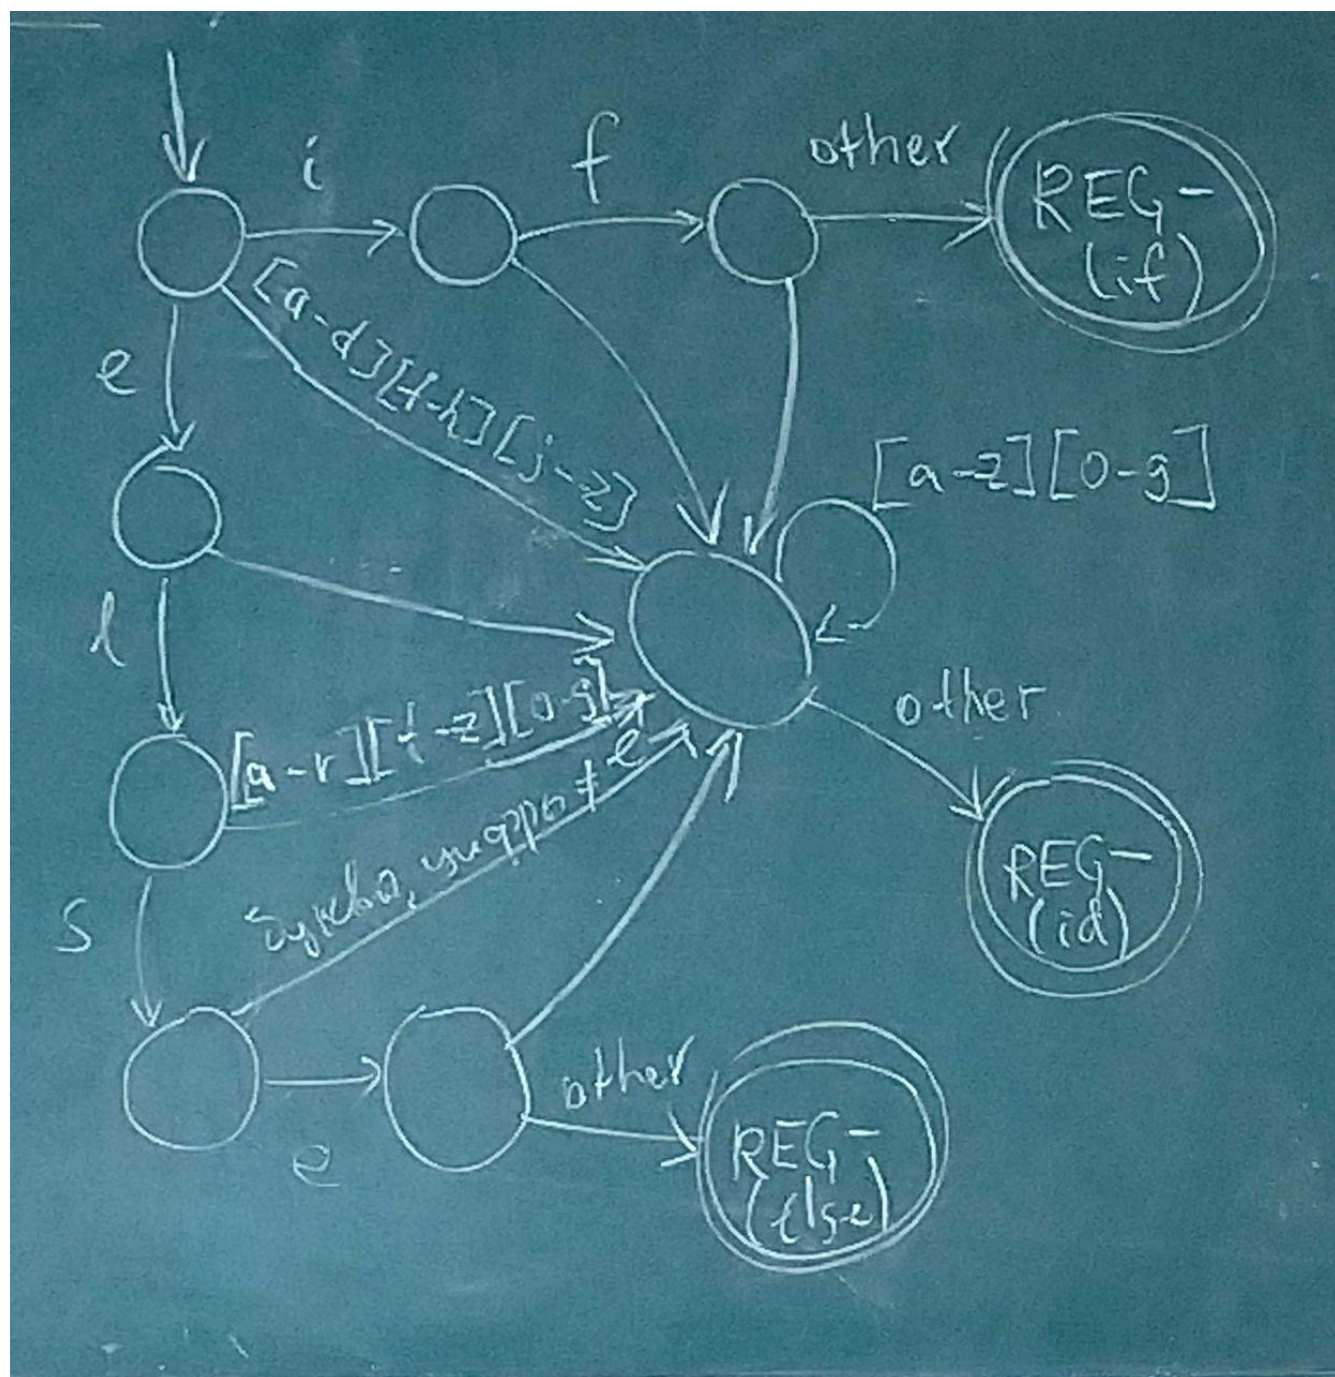 i
f
other
REG-
(if)
e
[a-d][f-h][j-z]
[a-z][0-9]
l
[a-r][t-z][0-9]
other
буква, цифра ≠ e
REG-
(id)
s
other
e
REG-
(else)